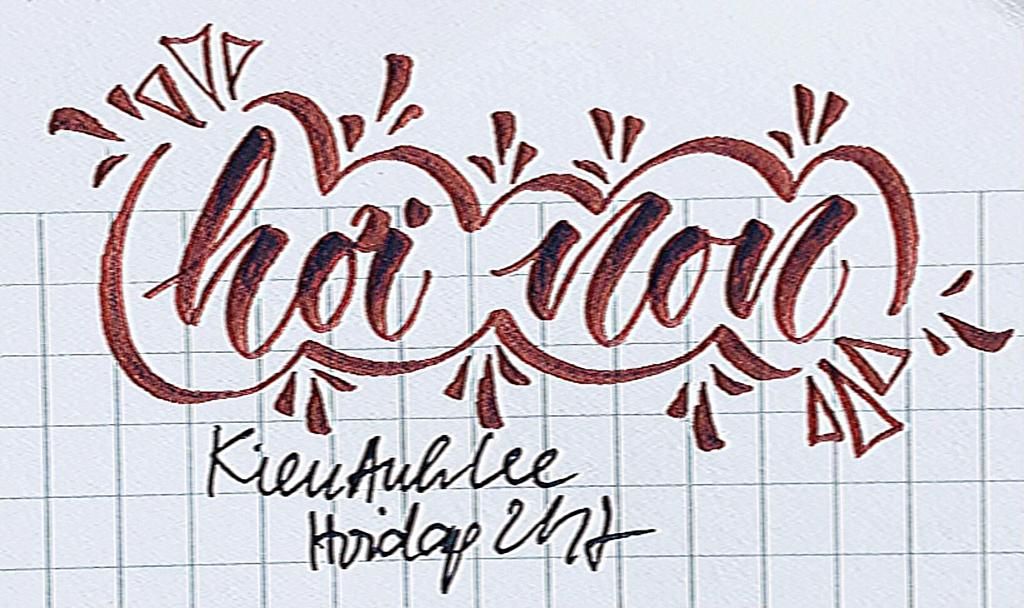 hơi non
KieuAnhLee
Hoidap 247